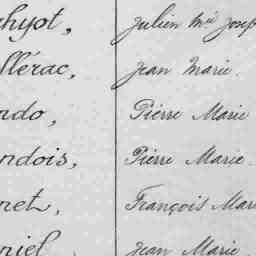 hyot, Julien Mie Josep
llérac, Jean Marie.
ndo, Pierre Marie
ndois, Pierre Marie.
net, François Mar
riel, Jean Marie.